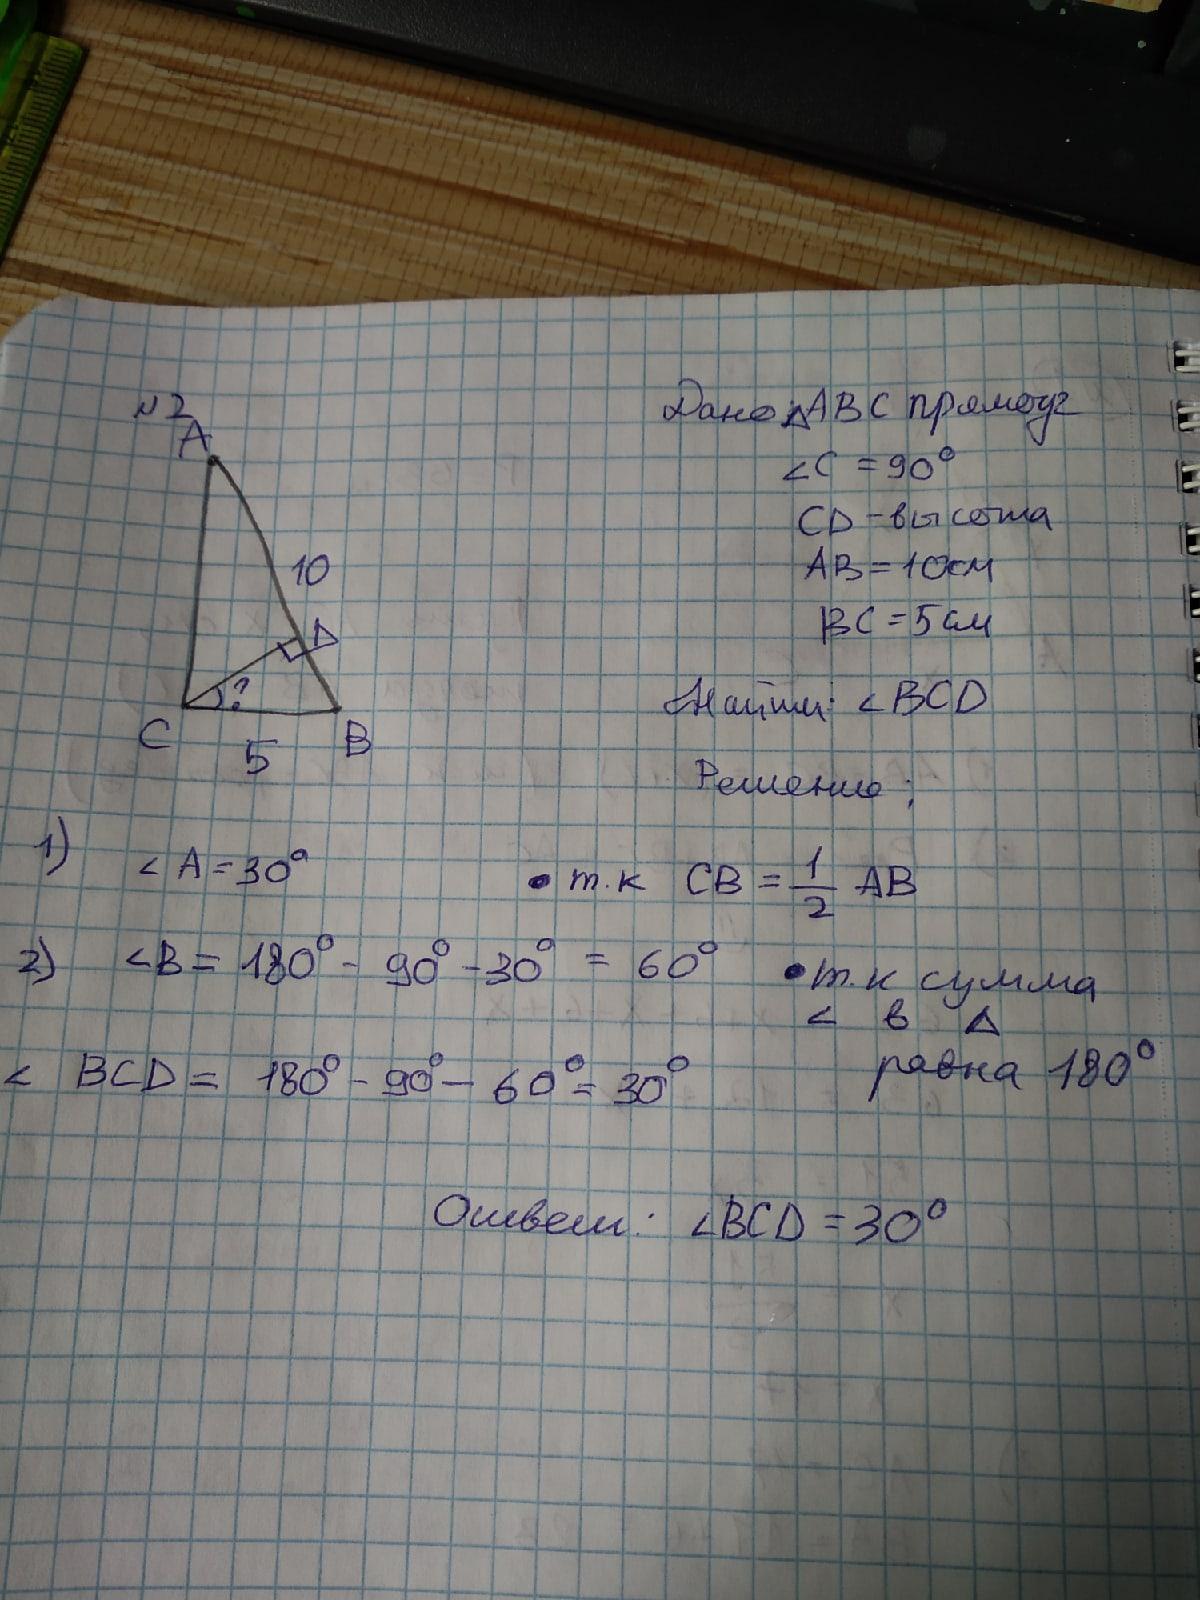 №2
A
10
D
?
C
5
B
Дано: △ABC прямоуг
∠C = 90°
CD - высота
AB = 10см
BC = 5см
Найти: ∠BCD
Решение:
1) ∠A = 30° • т.к CB = 1/2 AB
2) ∠B = 180° - 90° - 30° = 60° • т.к сумма
∠ в △
равна 180°
∠ BCD = 180° - 90° - 60° = 30°
Ответ: ∠BCD = 30°